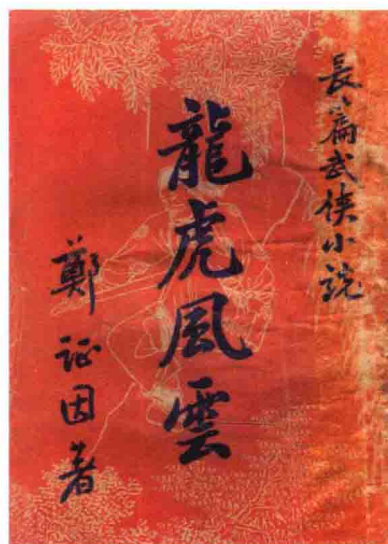 長篇武俠小説
龍虎風雲
鄭证因著